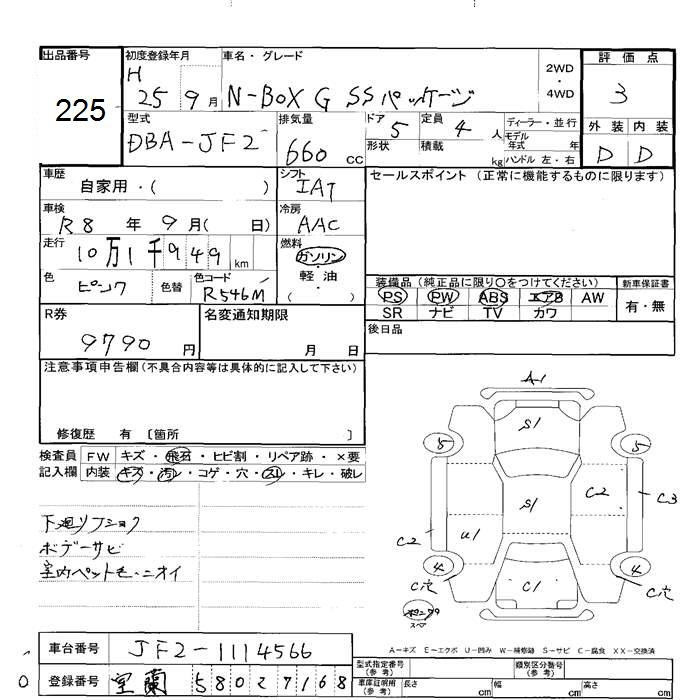 出品番号 初度登録年月 車名・グレード 評価点
225 H 25 9月 N-BOX G SSパッケージ 2WD・4WD 3
型式 排気量 ドア 5 定員 4人 ディーラー・並行 外装 内装
DBA-JF2 660 cc 形状 積載 kg モデル年式 年 ハンドル 左・右 D D
車歴 自家用・( ) シフト IAT セールスポイント (正常に機能するものに限ります)
車検 R8年 9月( 日) 冷房 AAC
走行 10万1千949km 燃料 ガソリン・軽油・( )
色 ピンク 色替 色コード R546M 装備品 (純正品に限り〇をつけてください) 新車保証書
PS PW ABS エアB AW 有・無
SR ナビ TV カワ
R券 9790円 名変通知期限 月 日 後日品
注意事項申告欄 (不具合内容等は具体的に記入して下さい)
修復歴 有 〔箇所 〕
検査員 FW キズ・飛石・ヒビ割・リペア跡・×要
記入欄 内装 キズ・汚レ・コゲ・穴・スレ・キレ・破レ
下廻リフショク
ボデーサビ
室内ペット毛・ニオイ
A-1
S1
5 5
S1 C2 C3
C2 U1
4 4
C穴 C1 C穴
スペア
A-キズ E-エクボ U-凹み W-補修跡 S-サビ C-腐食 XX-交換済
車台番号 JF2-1114566
型式指定番号 (参考) 類別区分番号 (参考)
0 登録番号 室蘭 580 27168
車庫証明用 (参考) 長さ cm 幅 cm 高さ cm